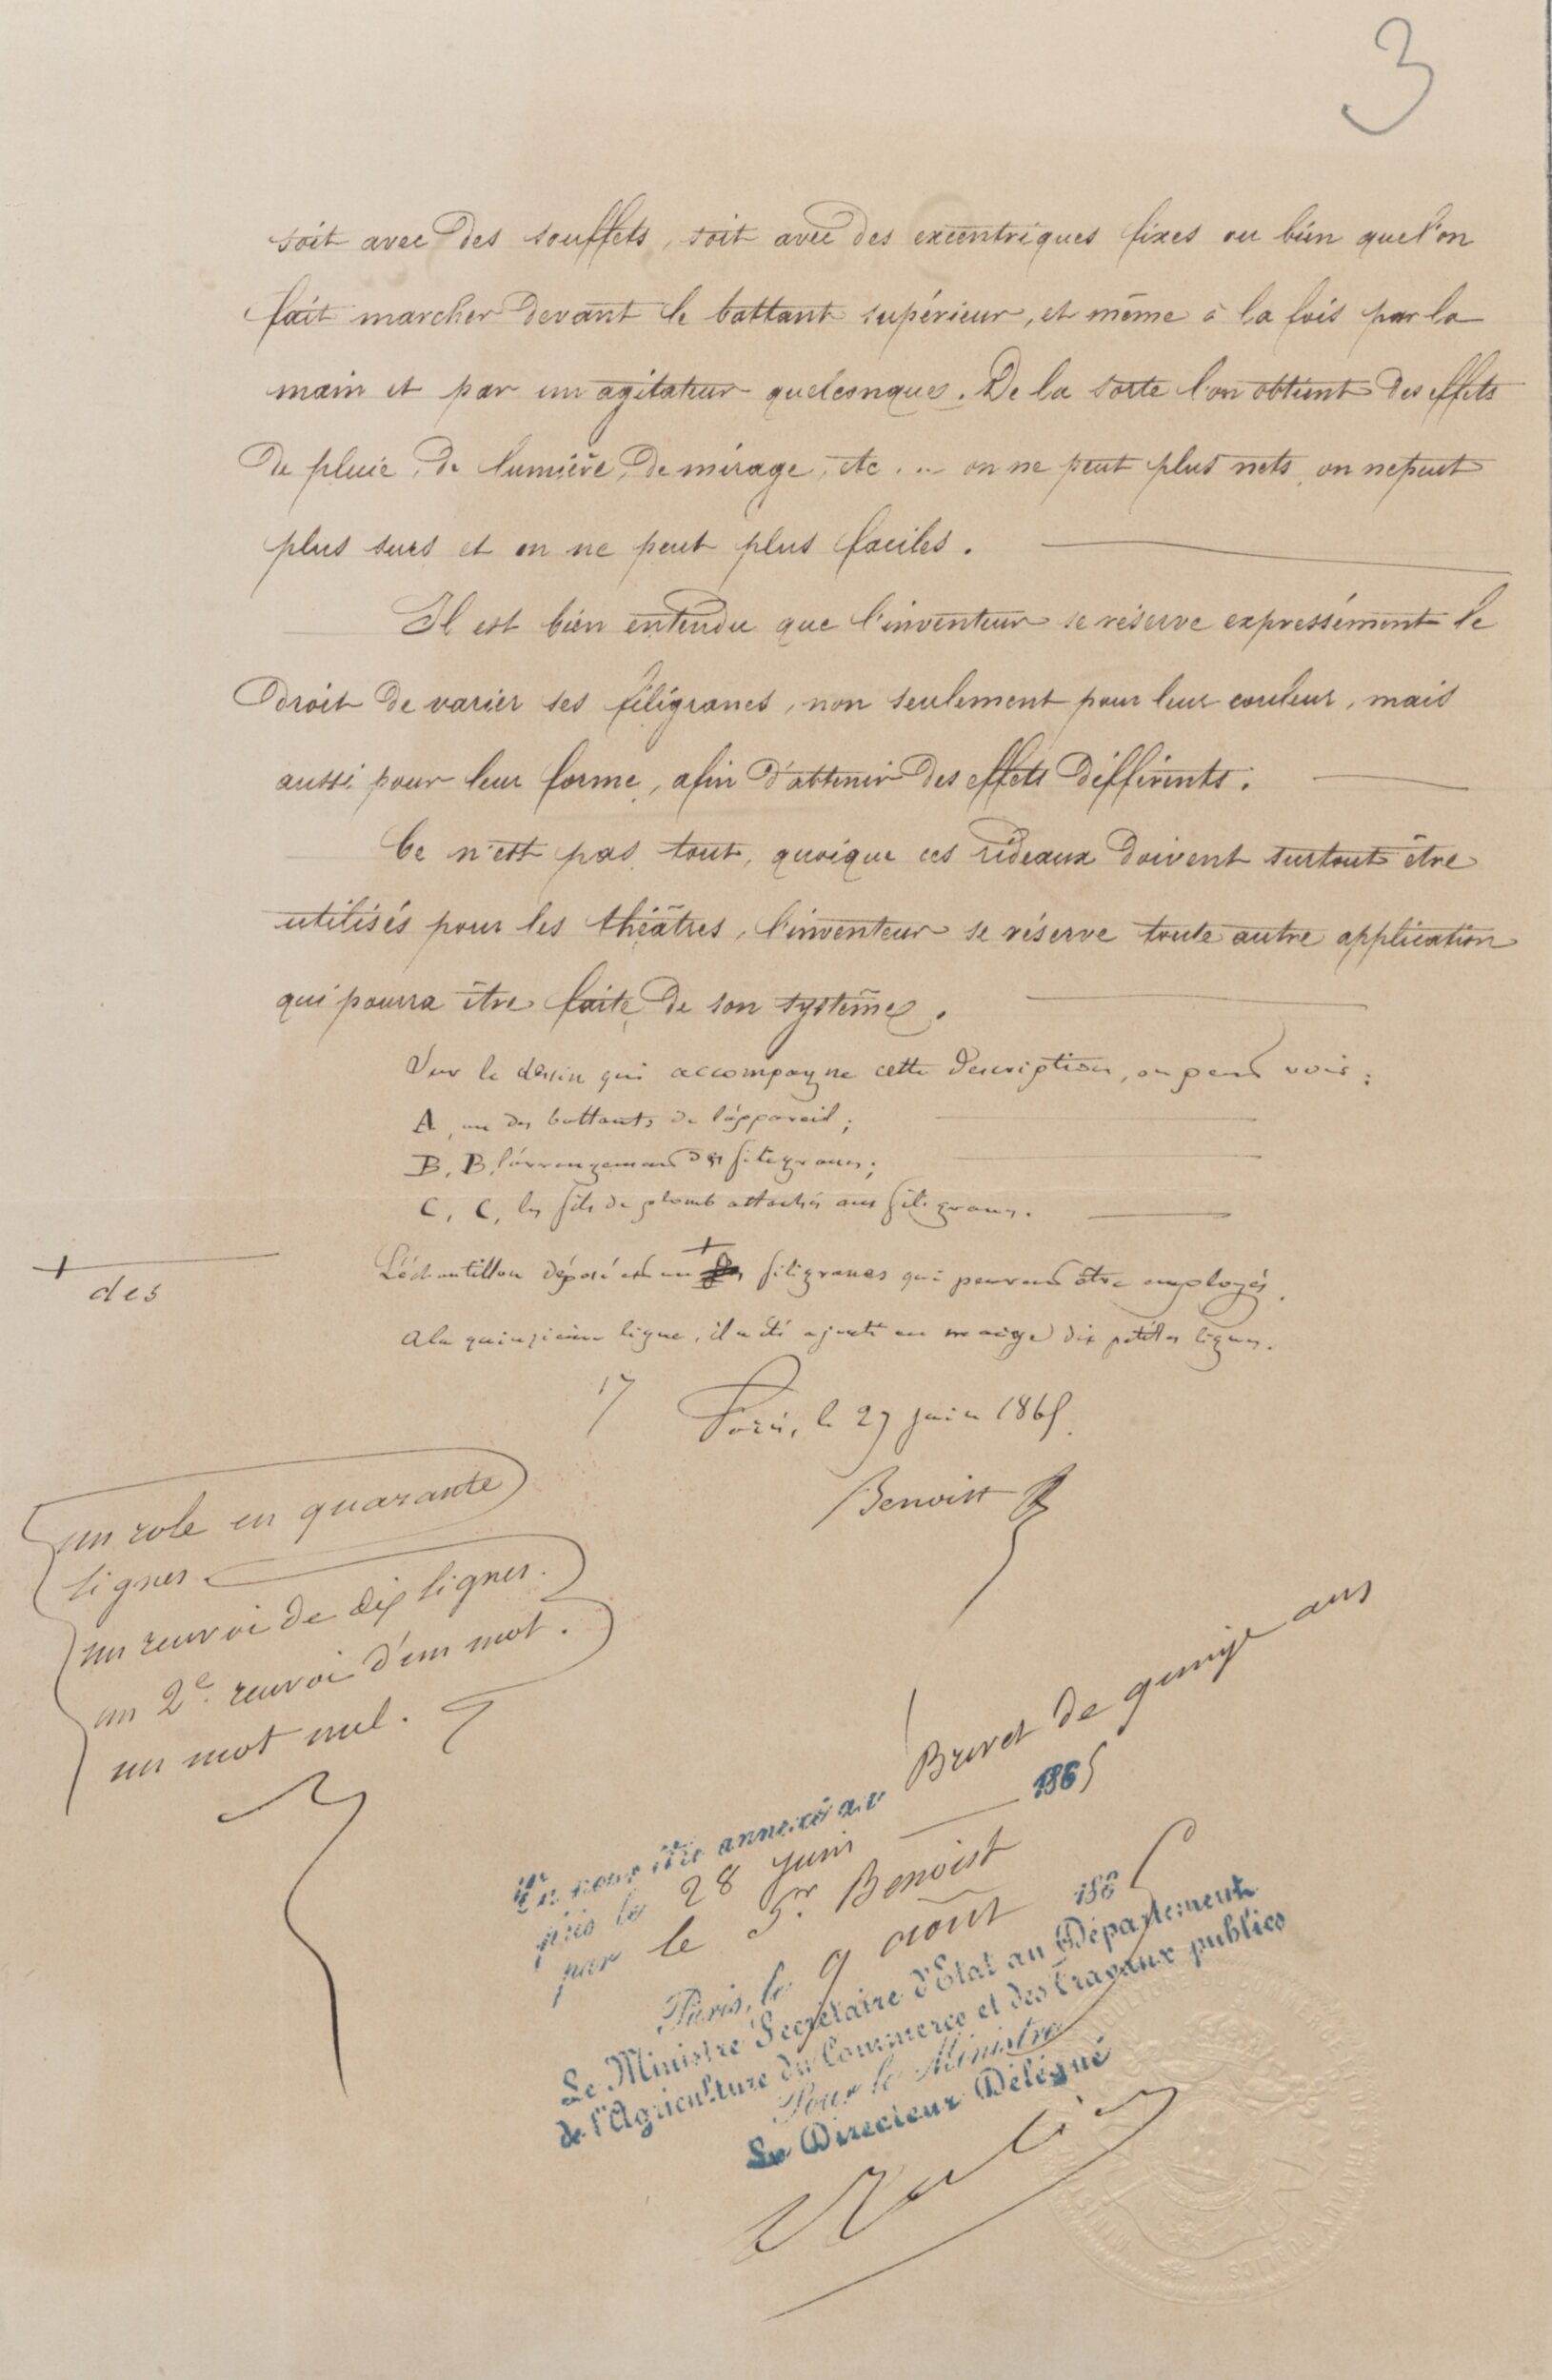 3
soit avec des soufflets, soit avec des excentriques fixes ou bien que l'on
fait marcher devant le battant supérieur, et même à la fois par la
main et par un agitateur quelconque. De la sorte l'on obtient des effets
de pluie, de lumière, de mirage, etc... on ne peut plus nets, on ne peut
plus surs et on ne peut plus faciles.
Il est bien entendu que l'inventeur se réserve expressément le
droit de varier ses filigranes, non seulement pour leur couleur, mais
aussi pour leur forme, afin d'obtenir des effets différents.
Ce n'est pas tout, quoique ces rideaux doivent surtout être
utilisés pour les théâtres, l'inventeur se réserve toute autre application
qui pourra être faite de son système.
Sur le dessin qui accompagne cette description, on peut voir:
A, un des battants de l'appareil;
B, B, l'arrangement des filigranes;
C, C, les fils de plomb attachés aux filigranes.
L'échantillon déposé est un + filigranes qui peuvent être employés.
+ des
A la quinzième ligne, il a été ajouté en marge dix petites lignes.
17
Paris, le 27 juin 1865.
Benoist
un role en quarante
lignes.
un renvoi de dix lignes.
un 2e. renvoi d'un mot.
un mot nul.
Vu pour être annexé au Brevet de quinze ans
pris le 28 juin 1865
par le Sr. Benoist
Paris, le 9 août 1865
Le Ministre Secrétaire d'Etat au Département
de l'Agriculture du Commerce et des Travaux publics
Pour le Ministre
Le Directeur Délégué